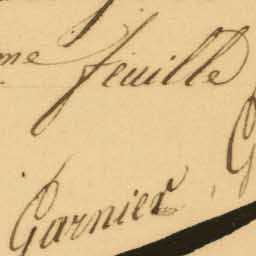 me feuille
Garnier, G